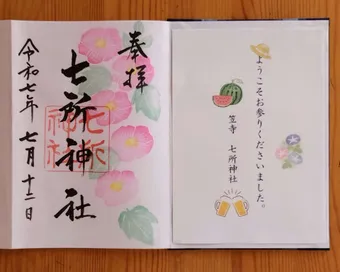 奉拝
七所神社
七所神社
令和七年 七月 十二日
ようこそお参りくださいました。
笠寺 七所神社